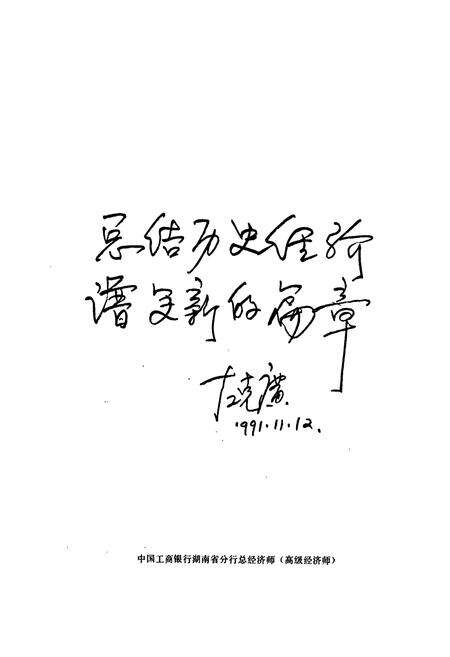 总结历史经验
谱写新的篇章
左克廣
1991.11.12.
中国工商银行湖南省分行总经济师（高级经济师）